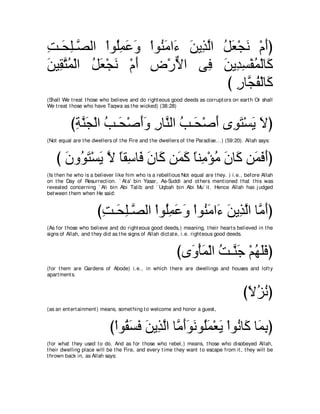 (أَمْ نَجْعَلُ الَّذِينَ ءَامَنُواْ وَعَمِلُواْ الصَّـلِحَـتِ
كَالْمُفْسِدِينَ فِى الاٌّرْضِ أَمْ نَجْعَلُ الْمُتَّقِينَ
كَالْفُجَّارِ )
(Shall We treat those who believe and do righteous good deeds as corruptors on earth Or shall
We treat those who have Taqwa as the wicked) (38:28)
(لاَ يَسْتَوِى أَصْحَـبُ النَّارِ وَأَصْحَـبُ الْجَنَّةِ)
(Not equal are the dwellers of the Fire and the dwellers of the Paradise...) (59:20). Allah says:
(أَفَمَن كَانَ مُؤْمِناً كَمَن كَانَ فَاسِقاً لاَّ يَسْتَوُونَ )
(Is then he who is a believer like him who is a rebellious Not equal are they.) i.e., before Allah
on the Day of Resurrection. `Ata' bin Yasar, As-Suddi and others mentioned that this was
revealed concerning `Ali bin Abi Talib and `Uqbah bin Abi Mu`it. Hence Allah has judged
between them when He said:
(أَمَّا الَّذِينَ ءَامَنُواْ وَعَمِلُواْ الصَّـلِحَـتِ)
(As for those who believe and do righteous good deeds,) meaning, their hearts believed in the
signs of Allah, and they did as the signs of Allah dictate, i.e. righteous good deeds.
(فَلَهُمْ جَنَّـتُ الْمَأْوَى)
(for them are Gardens of Abode) i.e., in which there are dwellings and houses and lofty
apartments.
(نُزُلاً)
(as an entertainment) means, something to welcome and honor a guest,
(بِمَا كَانُواْ يَعْمَلُونَوَأَمَّا الَّذِينَ فَسَقُواْ)
(for what they used to do. And as for those who rebel,) means, those who disobeyed Allah,
their dwelling place will be the Fire, and every time they want to escape from it, they will be
thrown back in, as Allah says: